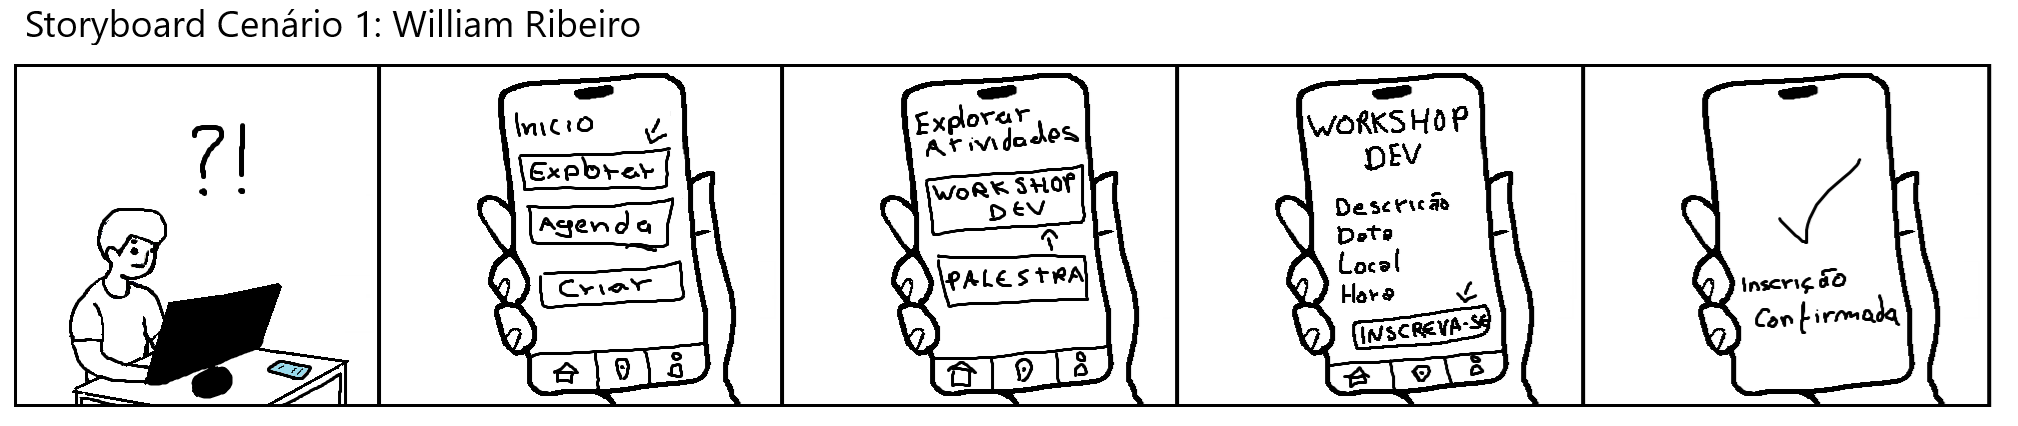 Storyboard Cenário 1: William Ribeiro
?!
Inicio
Explorar
Agenda
Criar
Explorar
Atividades
WORKSHOP
DEV
PALESTRA
WORKSHOP
DEV
Descrição
Data
Local
Hora
INSCREVA-SE
Inscrição
Confirmada